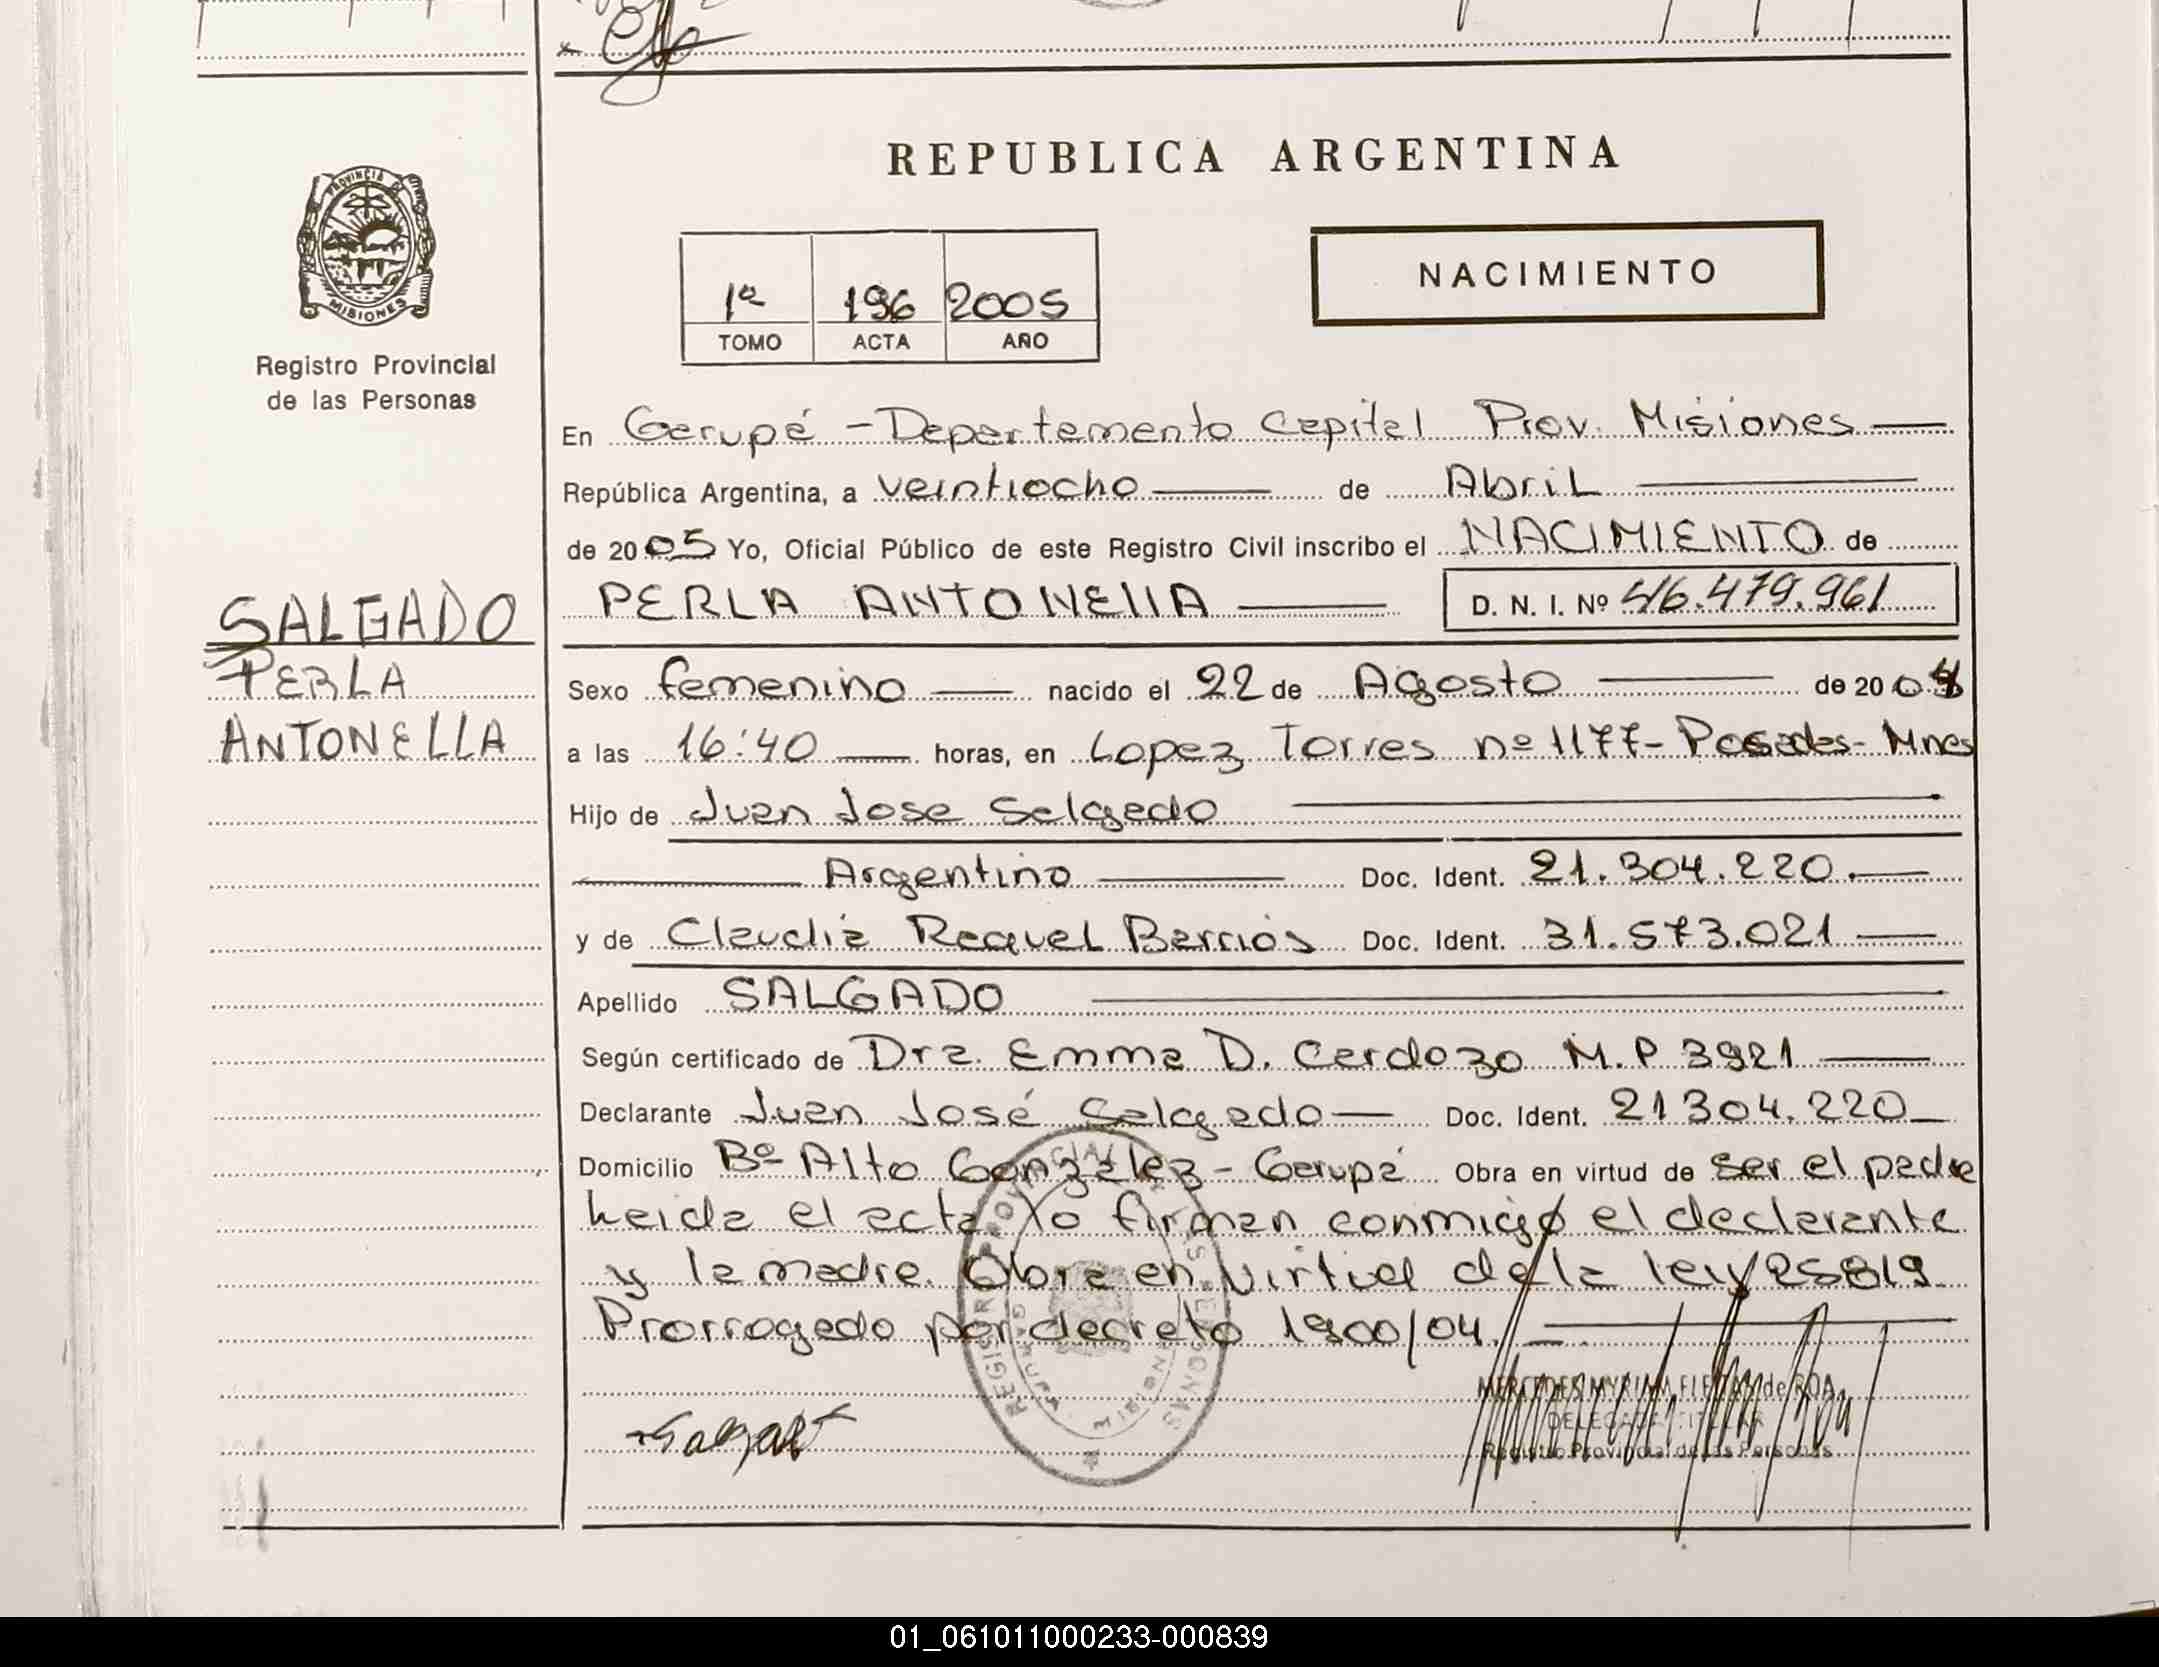 REPUBLICA ARGENTINA
PROVINCIA DE
MISIONES
Registro Provincial
de las Personas
NACIMIENTO
1º 196 2005
TOMO ACTA AÑO
En Garupá - Departamento Capital Prov. Misiones
República Argentina, a veintiocho de Abril
de 2005 Yo, Oficial Público de este Registro Civil inscribo el NACIMIENTO de
PERLA ANTONELLA D. N. I. Nº 46.479.961
SALGADO
PERLA
ANTONELLA
Sexo femenino nacido el 22 de Agosto de 2004
a las 16:40 horas, en Lopez Torres nº 1177 - Posadas - Mnes
Hijo de Juan Jose Salgado
Argentino Doc. Ident. 21.304.220.
y de Claudia Raquel Barrios Doc. Ident. 31.573.021
Apellido SALGADO
Según certificado de Dra. Emma D. Cardozo M.P 3921
Declarante Juan José Salgado Doc. Ident. 21304.220
Domicilio Bº Alto Gonzalez - Garupá Obra en virtud de ser el padre
Leida el acta lo firman conmigo el declarante
y la madre. Obra en virtud de la ley 25819
Prorrogado por decreto 1900/04.
MERCEDES MYRIAM FLEITAS de ROA
DELEGADA TITULAR
Registro Provincial de las Personas
Salgado
REGISTRO PROVINCIAL DE LAS PERSONAS
GARUPA MISIONES
01_061011000233-000839